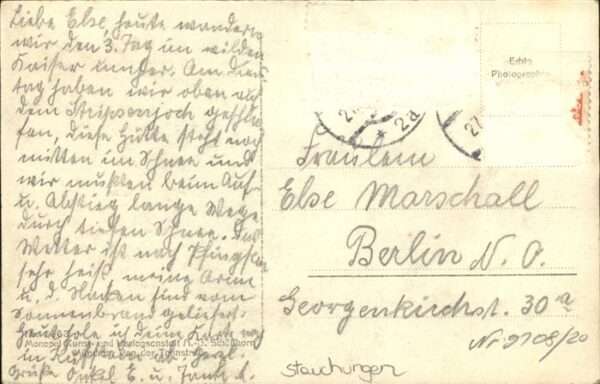 Liebe Else, heute wandern
wir den 3. Tag im wilden
Kaiser umher. Am Diens
tag haben wir oben auf
dem Stripsenjoch geschla
fen, diese Hütte steht noch
mitten im Schnee und
wir mußten beim Auf-
u. Abstieg lange Wege
durch tiefen Schnee. Das
Wetter ist nach Pfingsten
sehr heiß, meine Arme
u. d. Nacken sind vom
Sonnenbrand geliefert.
hole ich deine Karte
in Kufstein ab. Herzl.
Grüße Onkel E. u. Tante
Echte
Photographie
2a
27
Fräulein
Else Marschall
Berlin N. O.
Georgenkirchst. 30a
Nr 9708/20
Stauchungen